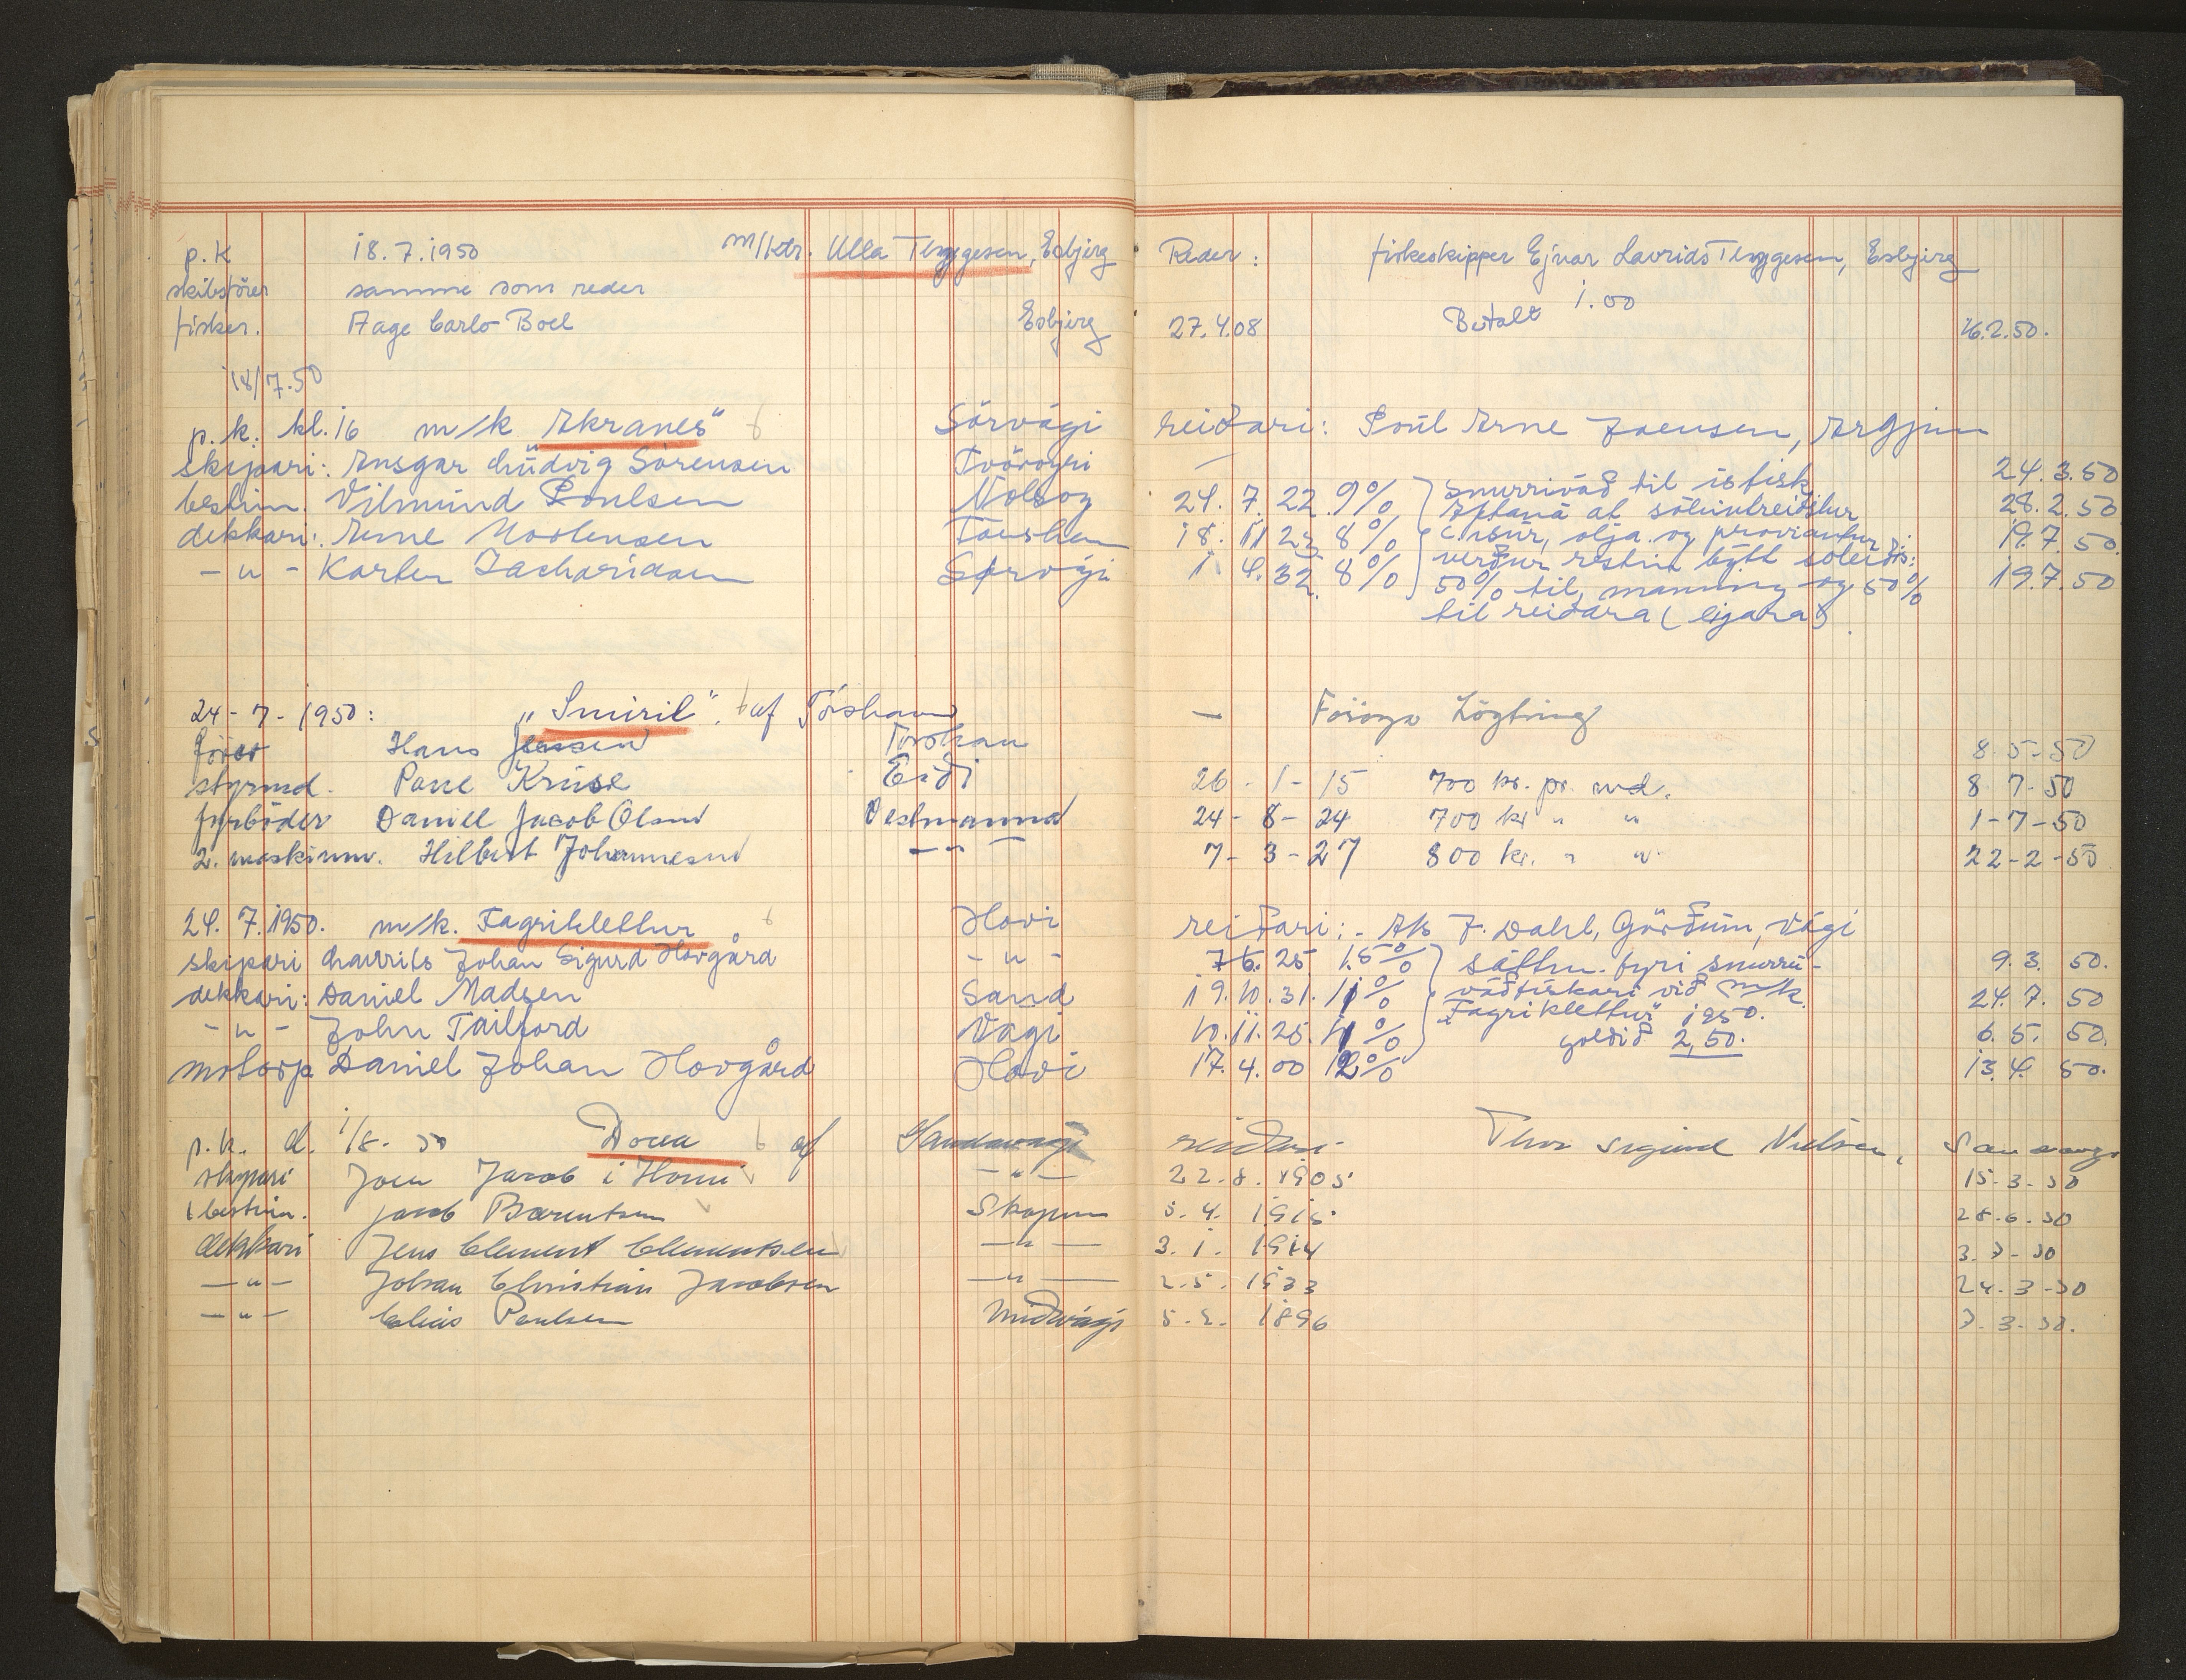 p.k 18.7.1950 m/ktr. Ulla Thygesen, Esbjerg Reder: fiskeskipper Ejnar Lavrids Thygesen, Esbjerg
skibsförer samme som reder
fisker. Aage Carlo Boel Esbjerg 27.4.08 Betalt 1.00 16.2.50.
18/7.50
p.k. kl. 16 m/k Akranes" Sörvági reiðari: Poul Arne Joensen, Argjum
skipari: Ansgar Lúdvig Sörensen Tvöroyri — 24.3.50
bestim. Vilmund Poulsen Nolsoy 24.7.22. 9% snurrivað til isfisk 28.2.50
dekkari: Arne Mortensen Torshavn 18.11 23 8% Aftaná at söluútreiðslur 19.7.50
-"- Karter Zachariasen Sørvági 1.4.32. 8% c. ísur, olja og proviantur
verður restin být soleiðis: 19.7.50
50% til manning og 50%
til reiðara (eigara).
24-7-1950: „Smiril". af Tórshavn — Föroya Lögting
förer Hans Jensen Torshavn 8-5-50
styrmd. Poul Kruse Eidi 26-1-15 700 kr. pr. md. 8-7-50
fyrböder Daniel Jacob Olsen Vestmanna 24-8-24 700 kr " " 1-7-50
2. maskinm. Hilbert Johannesen -"- 7-3-27 800 kr. " " 22-2-50
24.7.1950. m/k. Fagriklettur Hovi reiðari:- A/s J. Dahl, Görðum, Vági
skipari Laurits Johan Sigurd Hovgård -"- 7.6.25 15% sáttm. fyri snurru- 9.3.50.
dekkari: Daniel Madsen Sand 19.10.31. 11% váðfiskari við m/k. 24.7.50
-"- John Tailford Vági 10.11.25. 11% „Fagriklettur" 1950. 6.5.50.
motorp. Daniel Johan Hovgård Hovi 17.4.00 12% goldið 2,50. 13.4.50.
p.k. d. 1/8-50 Dova af Sandavági reiðari Thor Sigurd Nielsen,
skipari Joen Jacob i Horni -"- 22.8.1905 15-3-50
bestim. Jacob Barentsen Skopun 5.4.1915 28.6.50
dekkari Jens Clement Clementsen -"- 3.1.1914
-"- Johan Christian Jacobsen -"- 2.5.1933 24-3-50
-"- Elias Poulsen Midvági 5.2.1896